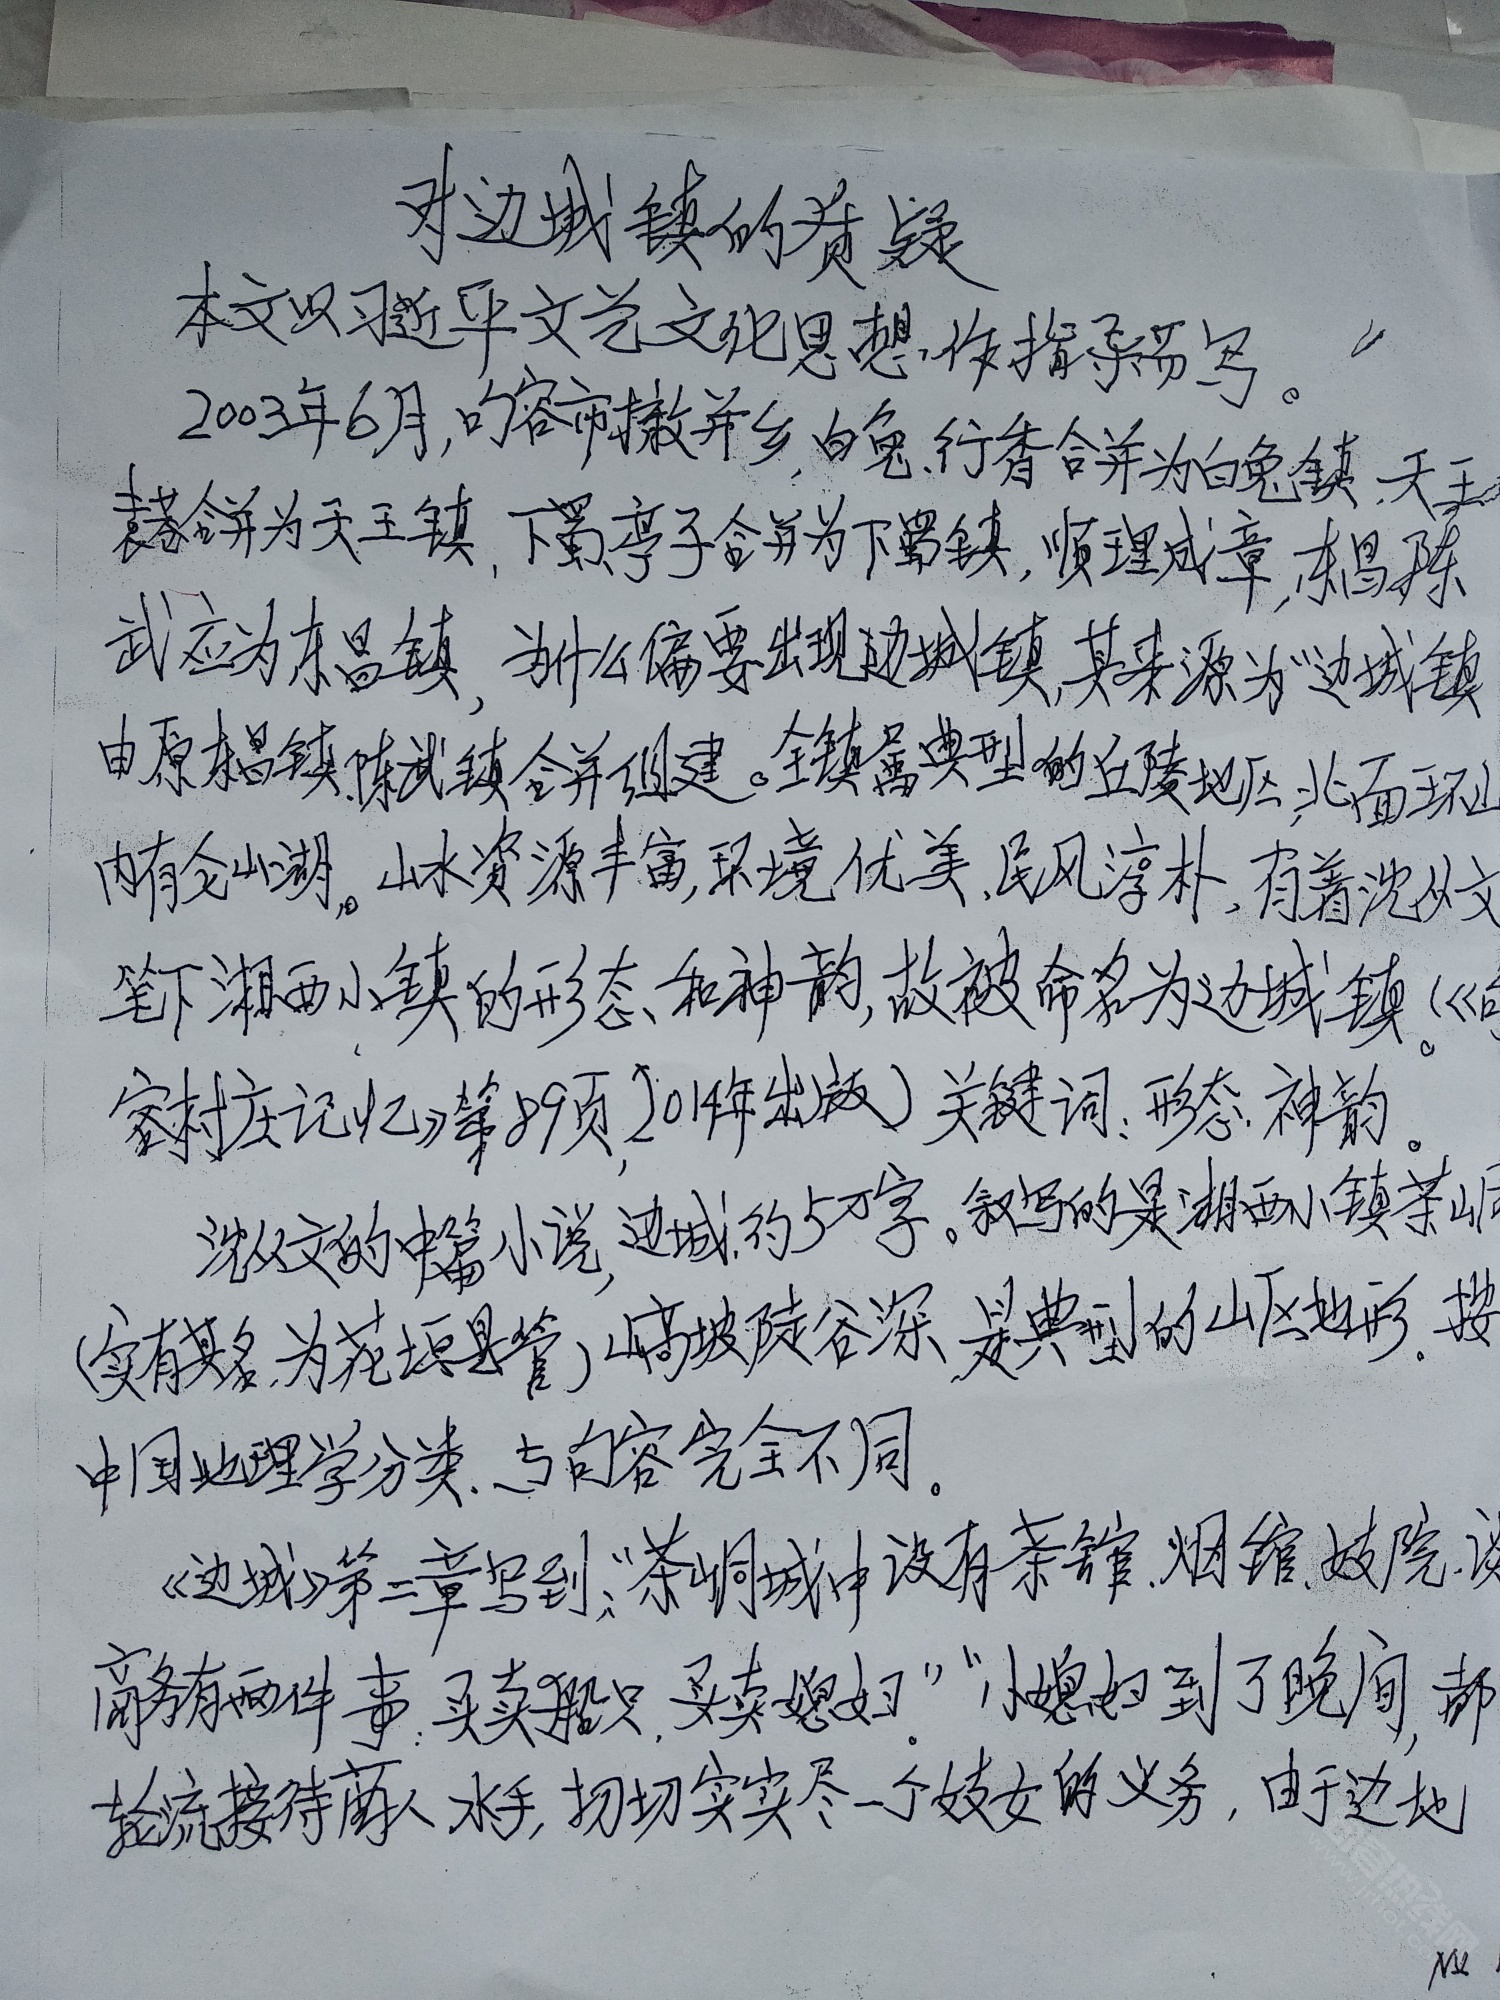 对边城镇的质疑
本文以习近平文艺文化思想,作指导而写。
2003年6月,句容市撤并乡,白兔、行香合并为白兔镇,天王
袁巷合并为天王镇,下蜀、亭子合并为下蜀镇,顺理成章,东昌陈
武应为东昌镇,为什么偏要出现边城镇,其来源为“边城镇
由原东昌镇、陈武镇合并组建。全镇属典型的丘陵地区,北面环山
内有仑山湖。山水资源丰富,环境优美、民风淳朴,有着沈从文
笔下湘西小镇的形态、和神韵,故被命名为边城镇。(《句
容村庄记忆》第89页,2014年出版)关键词:形态、神韵。
沈从文的中篇小说,边城,约5万字。叙写的是湘西小镇茶峒
(实有其名,为花垣县管)山高坡陡谷深,是典型的山区地形。按
中国地理学分类、与句容完全不同。
《边城》第二章写到:“茶峒城中设有茶馆、烟馆、妓院、谈
商务有两件事:买卖船只,买卖媳妇。”“小媳妇到了晚间,都
轮流接待商人、水手,切切实实尽一个妓女的义务,由于边地